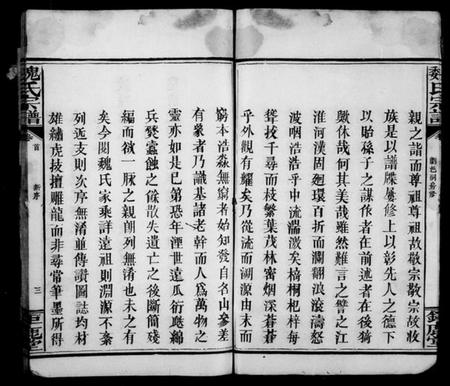 魏氏宗譜
親之詣而尊祖尊祖故敬宗敬宗故收
族是以譜牒屢修上以彰先人之德下
以貽孫子之謀作者在前述者在後猗
歟休哉何其美哉雖然難言之譬之江
淮河漢固迴環百折而瀾翻浪滾濤怒
波咽浩浩乎中流湍激矣椅桐杞梓每
聳拔千尋而枝繁葉茂林密烟深蒼蒼
乎外觀有耀矣乃從流而溯源由末而
窮本浩淼無窮者始知發自名山參差
有象者乃識基諸老幹而人爲萬物之
靈亦如是已第恐年湮世遠瓜衍瓞綿
兵燹蠹蝕之餘散失遺亡之後斷簡殘
編而欲一脉之親朗列無淆也未之有
矣今閱魏氏家乘詳遠祖則淵源不紊
列近支則次序無淆並傳讚圖誌均材
雄繡虎技擅雕龍而非尋常筆墨所得
魏氏宗譜
首
新序
三
鉅鹿堂